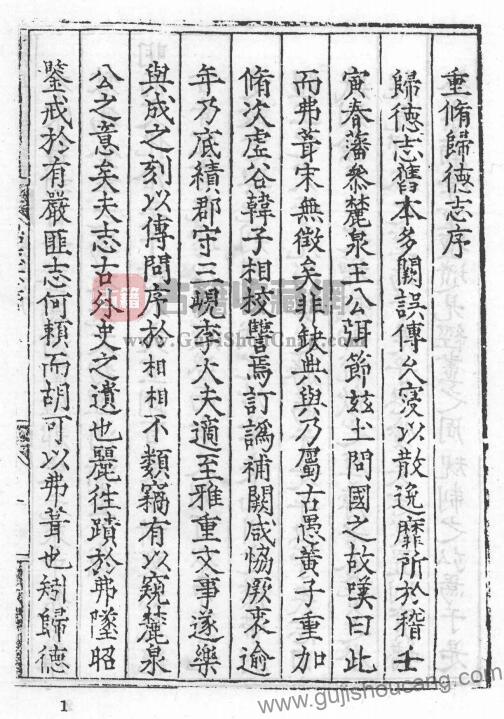 重脩歸德志序
歸德志舊本多闕誤傳久寖以散逸靡所於稽壬
寅春藩叅麓泉王公弭節兹土問國之故嘆曰此
而弗葺宋無徵矣非缺典與乃屬古愚黃子重加
脩次虚谷韓子相校讐焉訂譌補闕咸恊厥衷逾
年乃底績郡守三峴李大夫適至雅重文事遂樂
與成之刻以傳問序於相相不類竊有以窺麓泉
公之意矣夫志古外史之遺也麗徃蹟於弗墜昭
鑒戒於有嚴匪志何頼而胡可以弗葺也矧歸德
1
古籍
www.GujiShouCang.com
www.gujishoucang.com